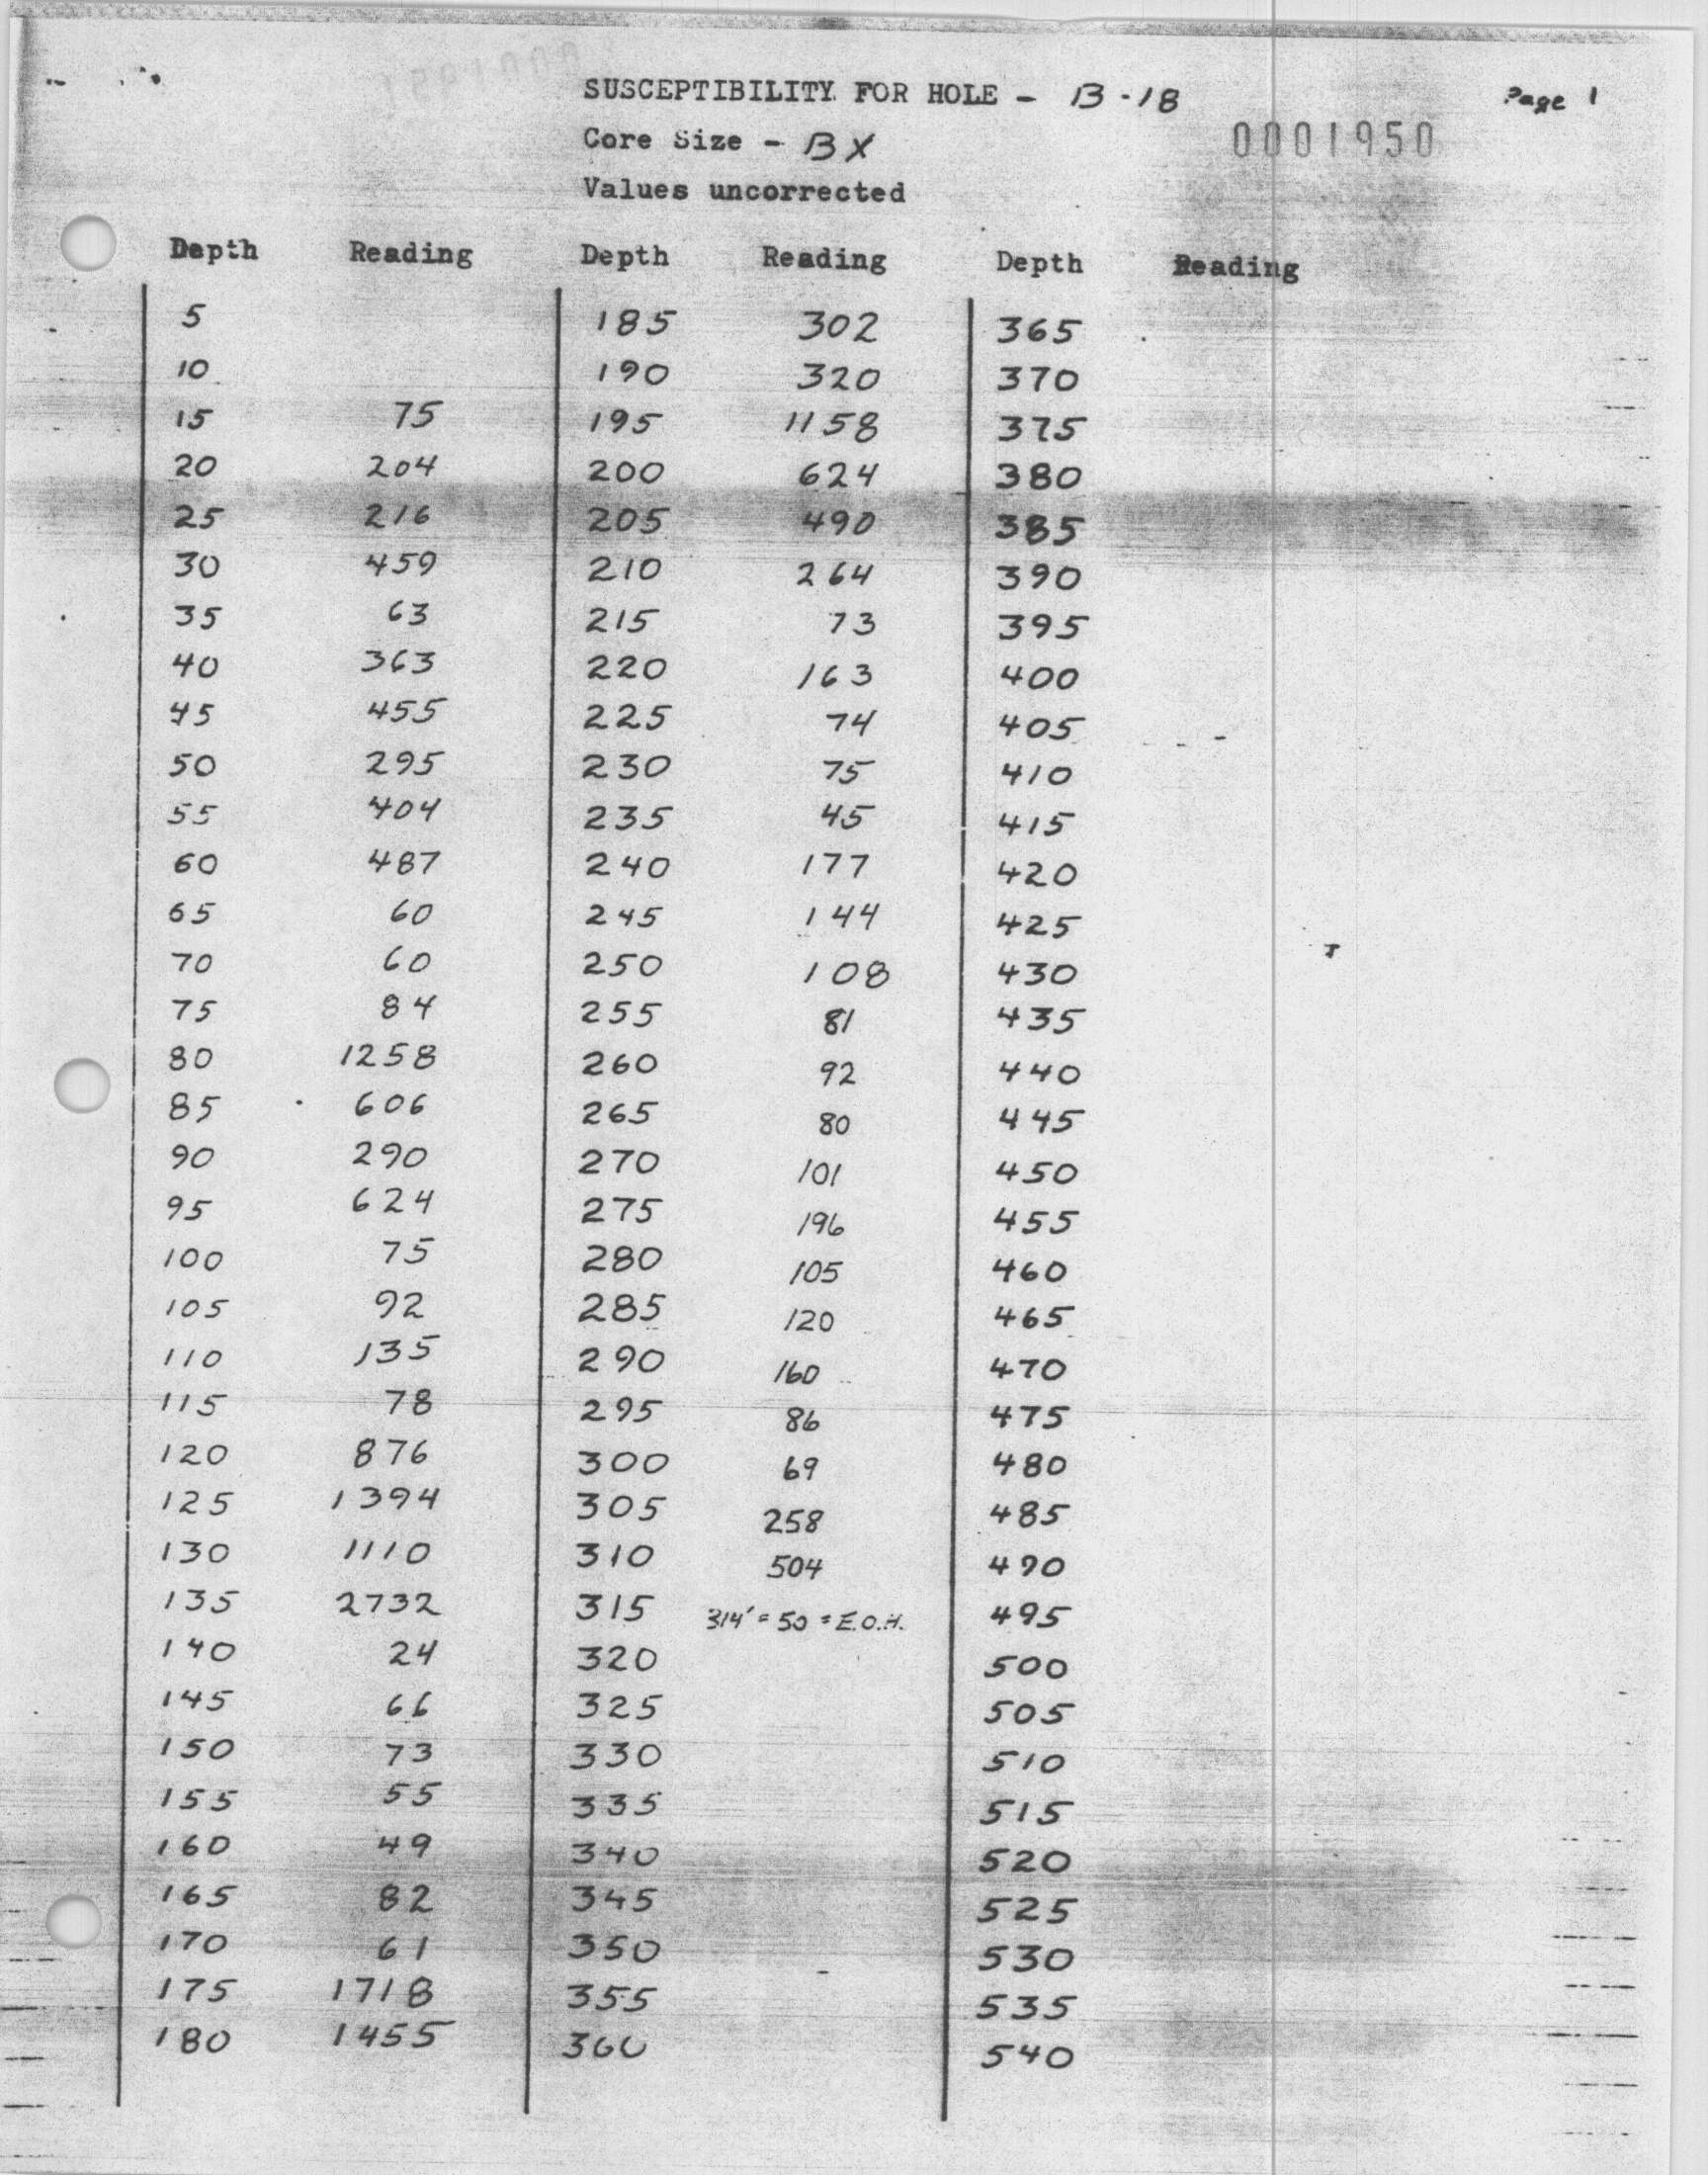 SUSCEPTIBILITY FOR HOLE - B-18
Page 1
Core Size - BX
0001950
Values uncorrected
Depth Reading Depth Reading Depth Reading
5 185 302 365
10 190 320 370
15 75 195 1158 375
20 204 200 624 380
25 216 205 490 385
30 459 210 264 390
35 63 215 73 395
40 363 220 163 400
45 455 225 74 405
50 295 230 75 410
55 404 235 45 415
60 487 240 177 420
65 60 245 144 425
70 60 250 108 430
75 84 255 81 435
80 1258 260 92 440
85 606 265 80 445
90 290 270 101 450
95 624 275 196 455
100 75 280 105 460
105 92 285 120 465
110 135 290 160 470
115 78 295 86 475
120 876 300 69 480
125 1394 305 258 485
130 1110 310 504 490
135 2732 315 314' = 50 = E.O.H. 495
140 24 320 500
145 66 325 505
150 73 330 510
155 55 335 515
160 49 340 520
165 82 345 525
170 61 350 530
175 1718 355 535
180 1455 360 540